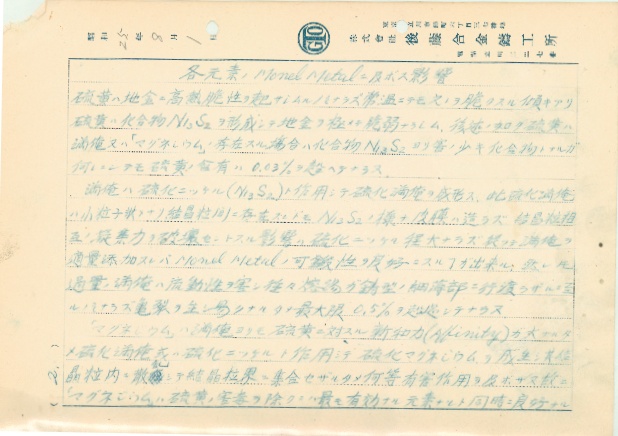 昭和 25年 8月 1日
株式會社 後藤合金鑄工所
各元素ノMonel Metalニ及ボス影響
硫黄ハ地金ニ高熱脆性ヲ起サシムルノミナラズ常温ニテモ之ヲ脆クスル傾キアリ
硫黄ハ化合物Ni3S2ヲ形成シテ地金ヲ極メテ脆弱ナラシム、後述ノ如ク硫黄ハ
満俺又ハ「マグネシウム」ノ存在スル場合ハ化合物Ni3S2ヨリ害ノ少キ化合物トナルガ
何レニシテモ硫黄ノ含有ハ0.03%ヲ超ベカラズ
満俺ハ硫化ニッケル(Ni3S2)ト作用シテ硫化満俺ヲ成形ス、此硫化満俺
ハ小粒子状ヲナリ結晶粒間ニ存在スルモNi3S2ノ様ナ皮膜ハ造ラズ 結晶粒相
互ノ凝集力ヲ破壊セントスル影響ハ硫化ニッケル程大ナラズ 故ニ満俺ヲ
適量添加スレバMonel Metalノ可鍛性ヲ良好ニスル事ガ出来ル、然シ乍
過量ノ満俺ハ流動性ヲ害シ往々熔湯ガ鋳型ノ細薄部ニ行渡ラザル
ノミナラズ亀裂ヲ生ジ易クナルカラ最大限0.5%ヲ超ベカラズ
「マグネシウム」ハ満俺ヨリモ硫黄ニ対スル親和力(Affinity)ガ大ナルタ
メ硫化満俺或ハ硫化ニッケルト作用シテ硫化マグネシウムヲ成生シ其結
晶粒内ニ散在シテ結晶粒界ニ集合セザルタメ何等有害作用ヲ及ボサズ故ニ
「マグネシウム」ハ硫黄ノ害毒ヲ除クニハ最モ有効ナル元素ナルト同時ニ良好ナル
(2.)